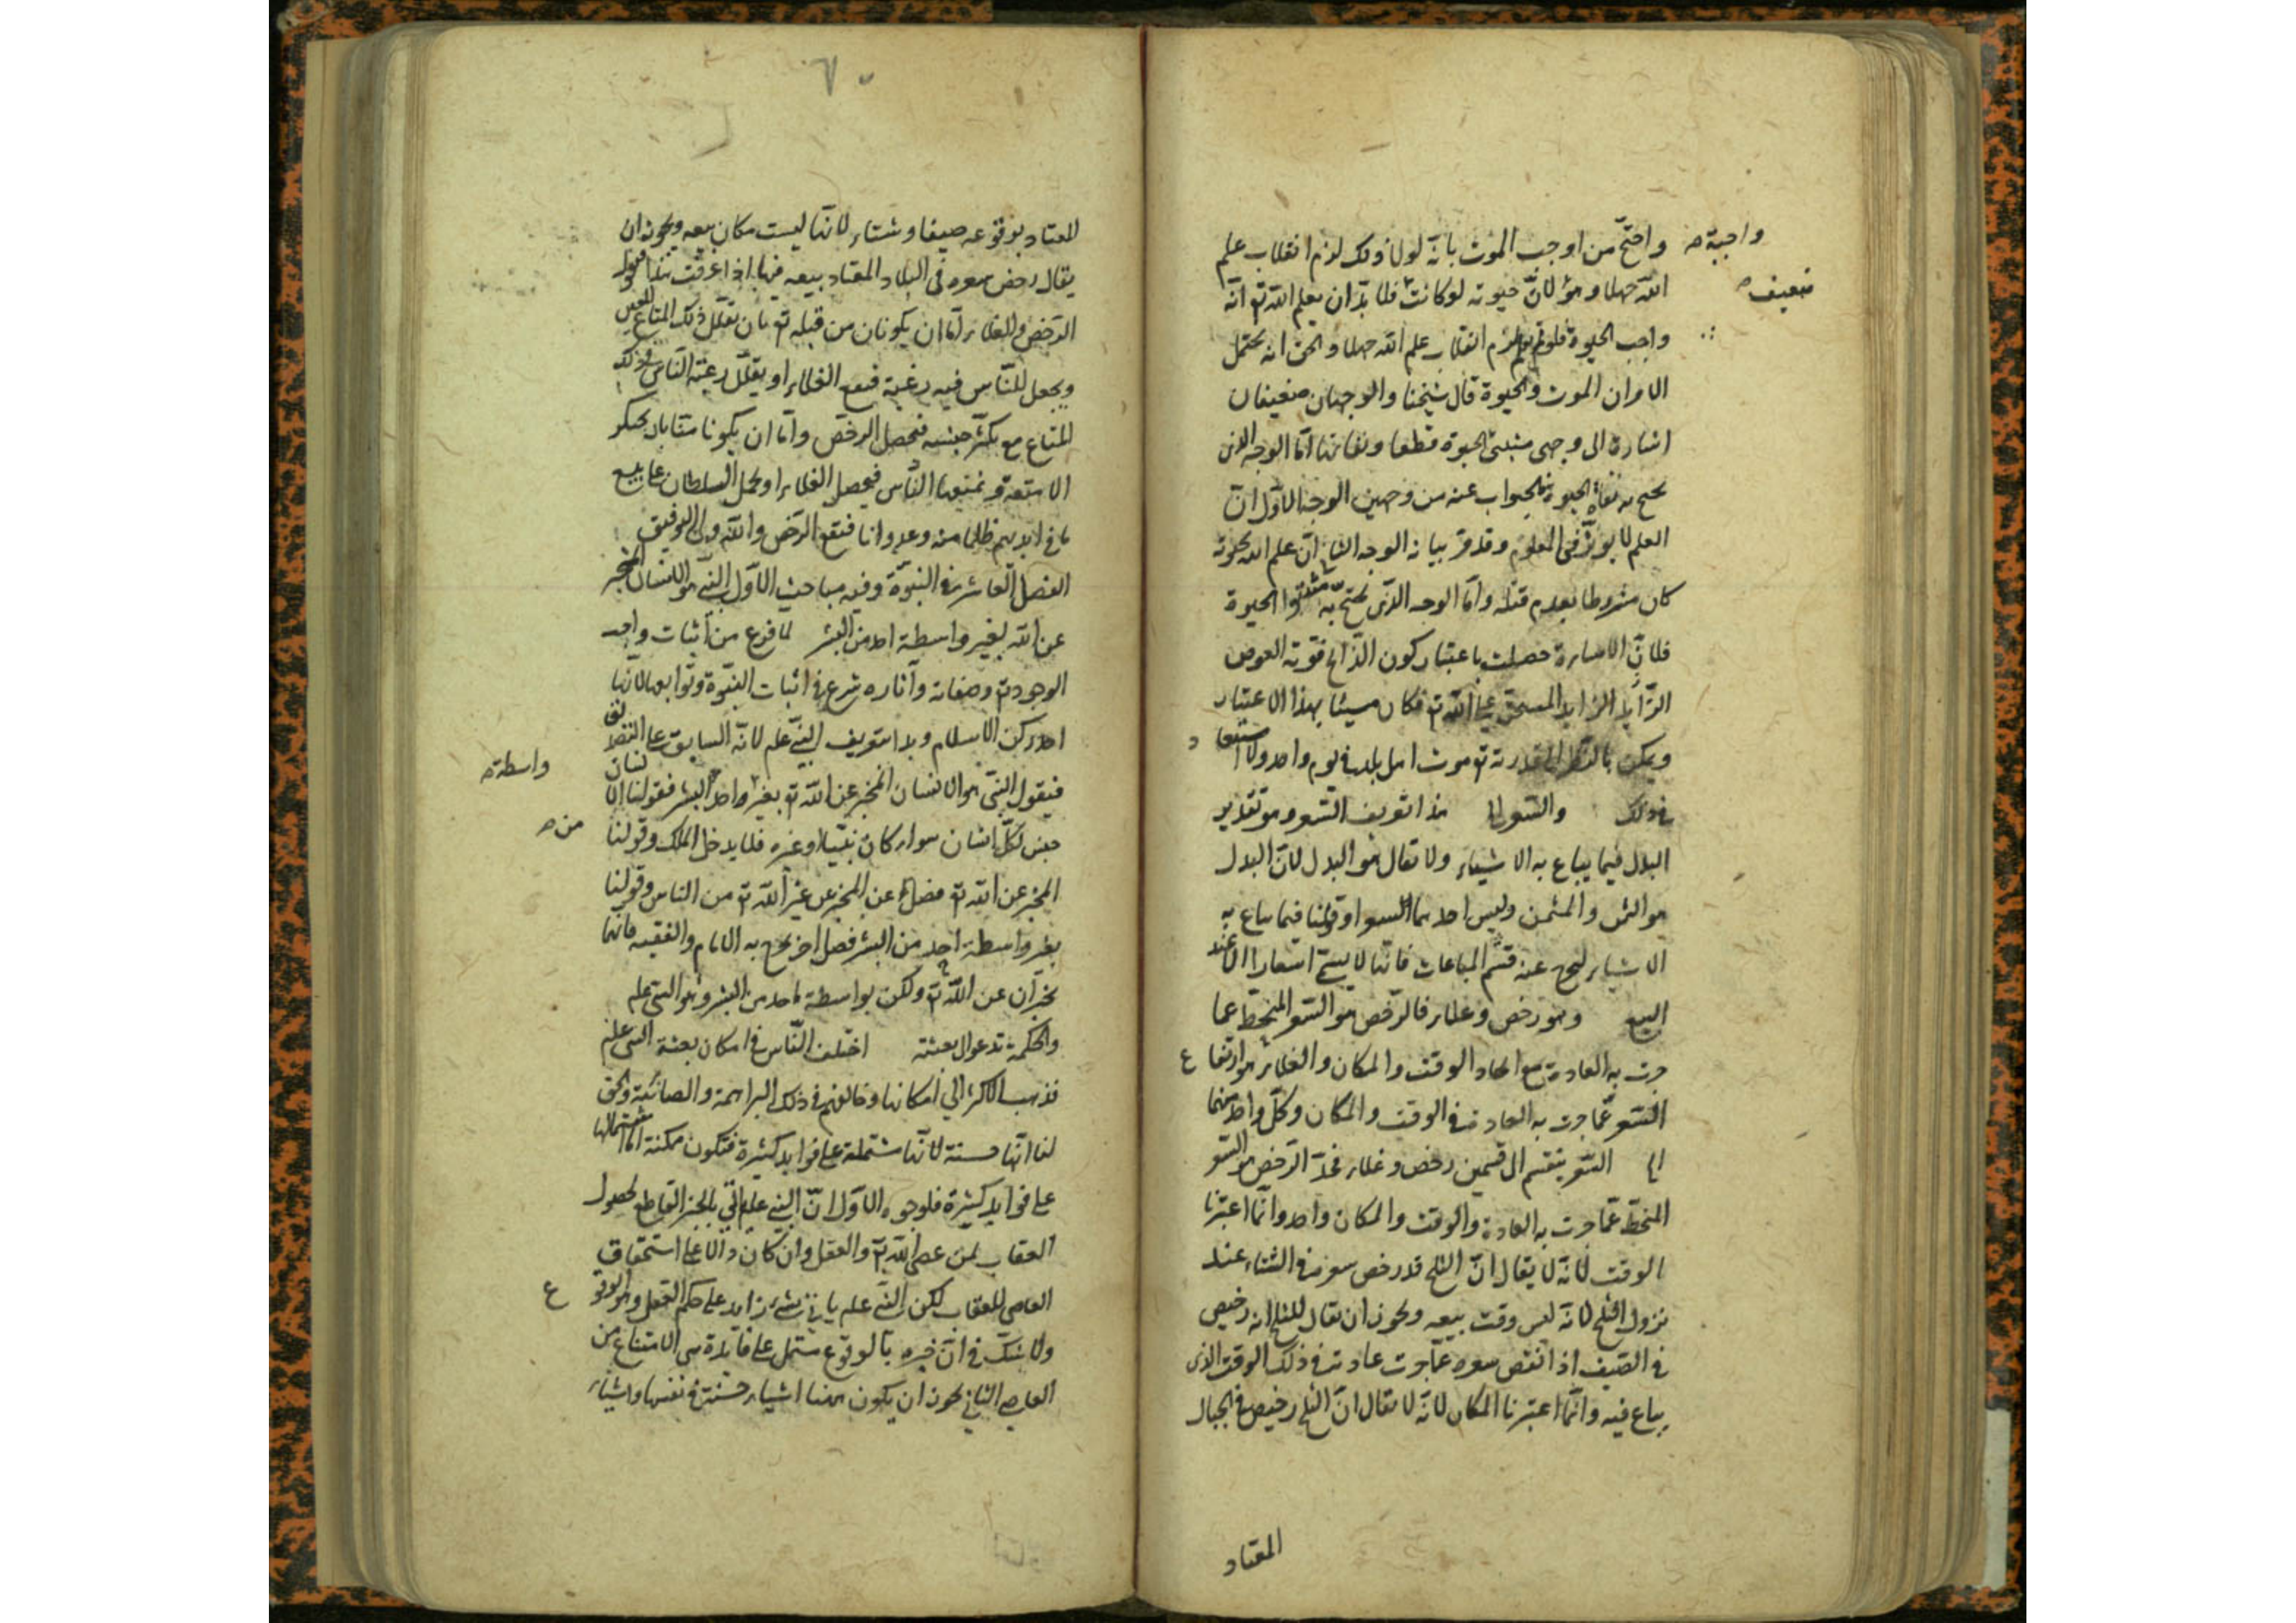 واحتج من اوجب الموت بانه لولا ذلك لزم انقلاب علم
الله جهلا وهو لان حيوته لو كانت فلا بد ان يعلم الله تع انه
واجب الحيوة فلو لزم انقلاب علم الله جهلا والحق انه يحتمل
الامران الموت والحيوة قال شيخنا والوجهان ضعيفان
اشارة الى وجهى مثبتى الحيوة قطعا ونفاتها اما الوجه الذى
يحتج به نفاة الحيوة فالجواب عنه من وجهين الوجه الاول ان
العلم لا يوثر فى المعلوم وقد مر بيانه الوجه الثانى ان علم الله بحيوته
كان مشروطا بعدم قتله واما الوجه الذى يحتج به مثبتوا الحيوة
فلان الاساءة حصلت باعتبار كون الذابح فوته العوض
الزايد المستحق على الله تع فكان مسيئا بهذا الاعتبار
ويمكن بالنظر الى قدرته تع موت اهل بلد فى يوم واحد ولا استبعاد
فى ذلك والسعر هذا تعريف السعر وهو تقدير
البدل فيما يباع به الاشياء ولا يقال هو البدل لان البدل
هو الثمن والمثمن وليس احدهما السعر وقولنا فيما يباع به
الاشياء ليخرج عنه قيم المباعات فانها لا يسمى اسعارا الا عند
البيع وهو رخص وغلاء فالرخص هو السعر المنحط عما
جرت به العادة مع اتحاد الوقت والمكان والغلاء هو ارتفاع
السعر عما جرت به العادة فى الوقت والمكان وكل واحد منهما
السعر ينقسم الى قسمين رخص وغلاء فحد الرخص هو السعر
المنحط عما جرت به العادة والوقت والمكان واحد وانما اعتبرنا
الوقت لانه لا يقال ان الثلج قد رخص سعره فى الشتاء عند
نزول الثلج لانه ليس وقت بيعه ويجوز ان يقال للثلج انه رخيص
فى الصيف اذا نقص سعره عما جرت عادته فى ذلك الوقت الذى
يباع فيه وانما اعتبرنا المكان لانه لا يقال ان الثلج رخيص فى الجبال
المعتاد
واجبة صه
ضعيف صه
٦٠
المعتاد بوقوعه صيفا وشتاء لانها ليست مكان بيعه ويجوز ان
يقال رخص سعره فى البلاد المعتاد بيعه فيها اذا عرفت هذا فنقول
الرخص والغلاء اما ان يكونان من قبله تع بان يقلل ذلك المتاع المعين
ويجعل للناس فيه رغبة فيقع الغلاء او يقلل رغبة الناس فى ذلك
المتاع مع تكثر جنسه فيحصل الرخص واما ان يكونا منا بان يحتكر
الامتعة ويمنعها الناس فيحصل الغلاء او يحمل السلطان على بيع
ما فى ايديهم ظلما منه وعدوانا فيقع الرخص والله ولى التوفيق
الفصل العاشر فى النبوة وفيه مباحث الاول النبى هو الانسان المخبر
عن الله بغير واسطة احد من البشر لما فرغ من اثبات واجب
الوجود تع وصفاته وآثاره شرع فى اثبات النبوة وتوابعها لانها
احد ركن الاسلام وبدا بتعريف النبى علم لانه السابق على التصديق
فنقول النبى هو الانسان المخبر عن الله تع بغير واحد البشر فقولنا الانسان
جنس لكل انسان سواء كان نبيا او غيره فلا يدخل الملك وقولنا
المخبر عن الله تع فصل عن المخبر عن غير الله تع من الناس وقولنا
بغير واسطة احد من البشر فصل آخر يخرج به الامام والفقيه فانهما
يخبران عن الله تع ولكن بواسطة احد من البشر وهو النبى علم
والحكمة تدعو الى بعثته اختلف الناس فى امكان بعثة النبى علم
فذهب الاكثر الى امكانها وخالفهم فى ذلك البراهمة والصائبة والحق
لنا انها حسنة لانها مشتملة على فوايد كثيرة فتكون ممكنة اما اشتمالها
على فوايد كثيرة فلوجوه الاول ان النبى علم اتى بالخبر القاطع لحصول
العقاب لمن عصى الله تع والعقل وان كان دالا على استحقاق
العاصى للعقاب لكن النبى علم ياتى بشىء زايد على حكم العقل وهو الوقوع
ولا شك فى ان خبره بالوقوع مشتمل على فايدة هى الامتناع من
المعاصى الثانى يجوز ان يكون ههنا اشياء حسنة فى نفسها واشياء
واسطة صه
من صه